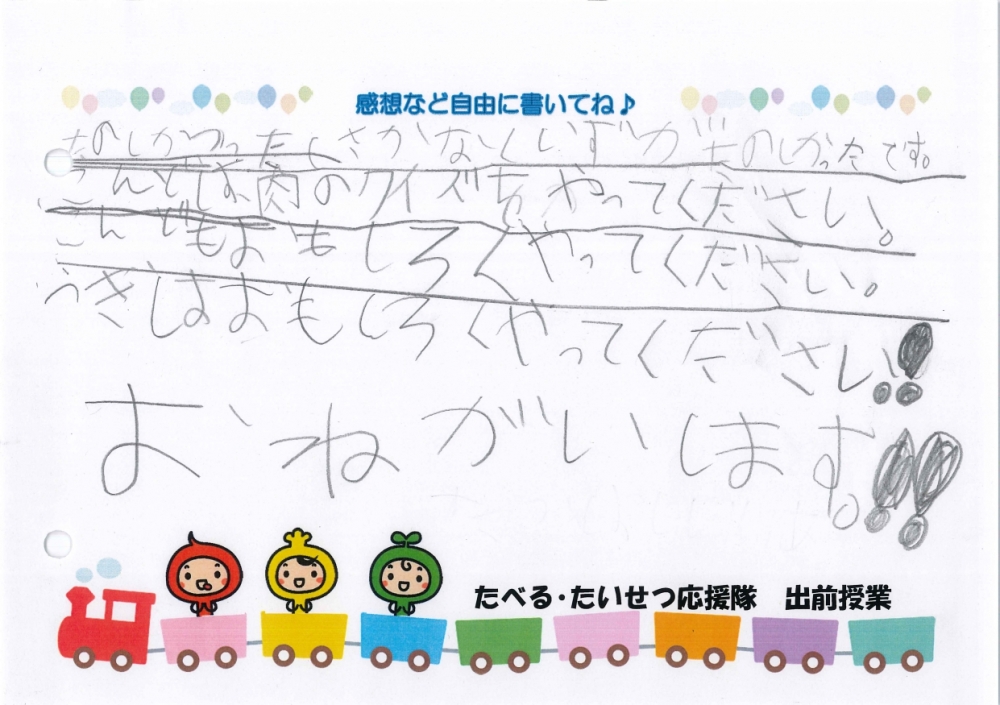 感想など自由に書いてね♪
たのしかつったしさかなくいずがたのしかったです。
こんどは、肉のクイズをやってください!。
こんどもおもしろくやってください。
つぎはおもしろくやってください!!
おねがいします。!!
たべる・たいせつ応援隊 出前授業